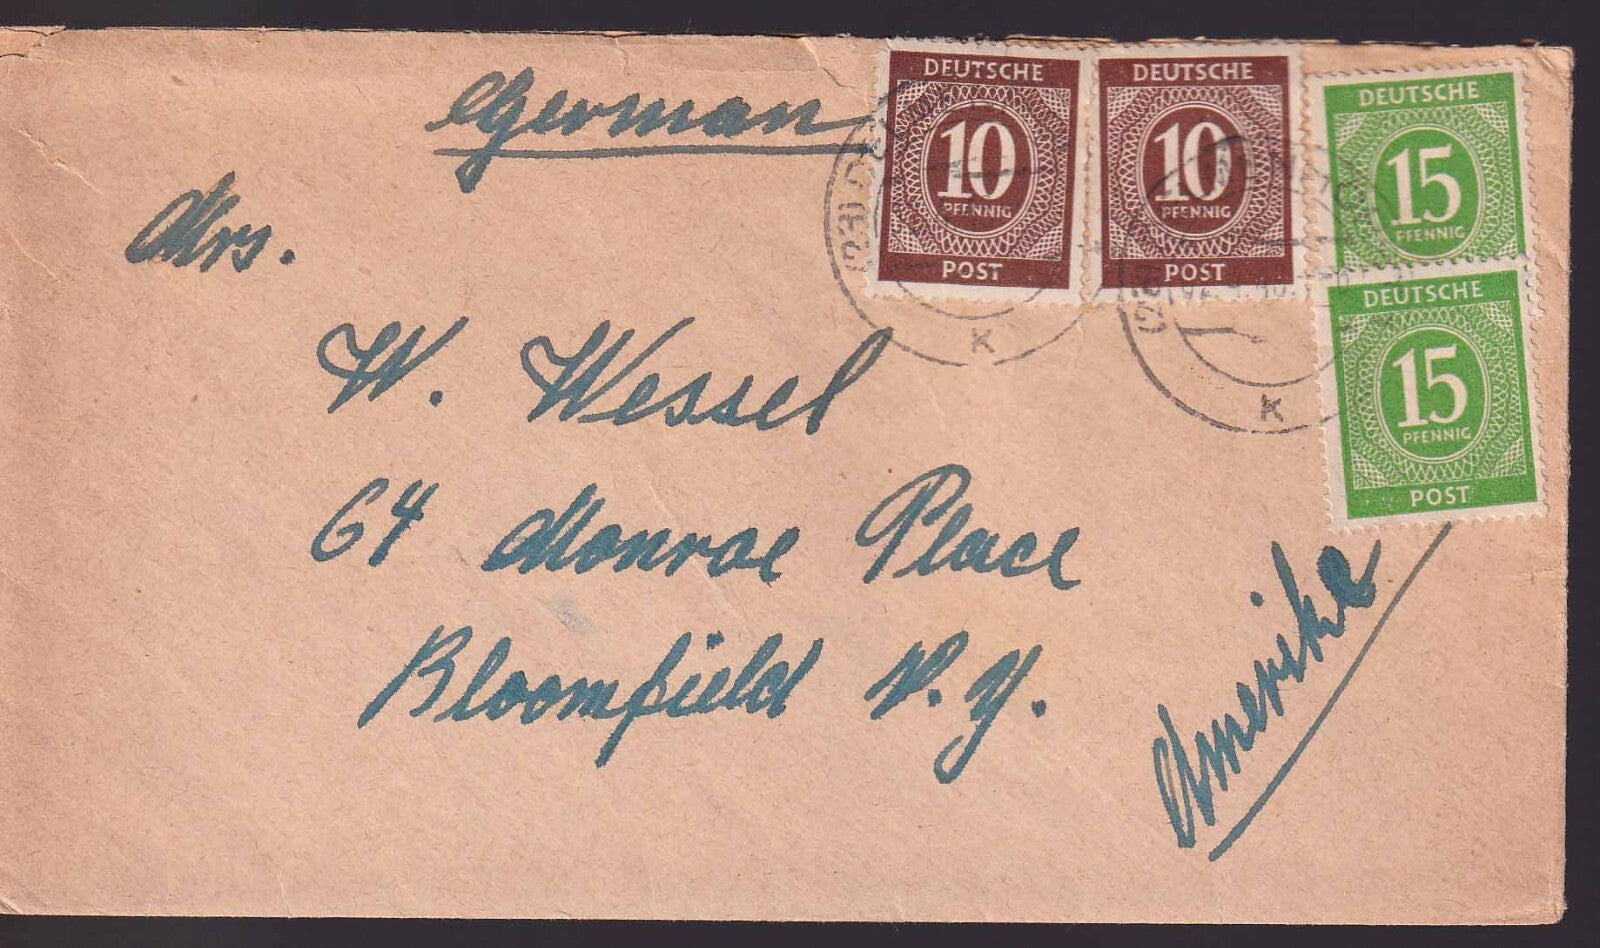 German
DEUTSCHE
10
PFENNIG
POST
DEUTSCHE
10
PFENNIG
POST
DEUTSCHE
15
PFENNIG
DEUTSCHE
15
PFENNIG
POST
K
K
Mrs.
W. Wessel
64 Monroe Place
Bloomfield N.Y.
Amerika